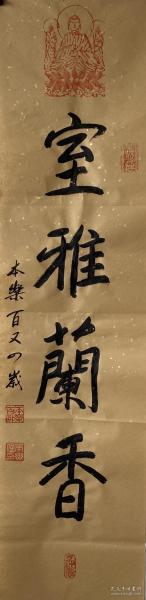 室雅蘭香
本樂百又四歲